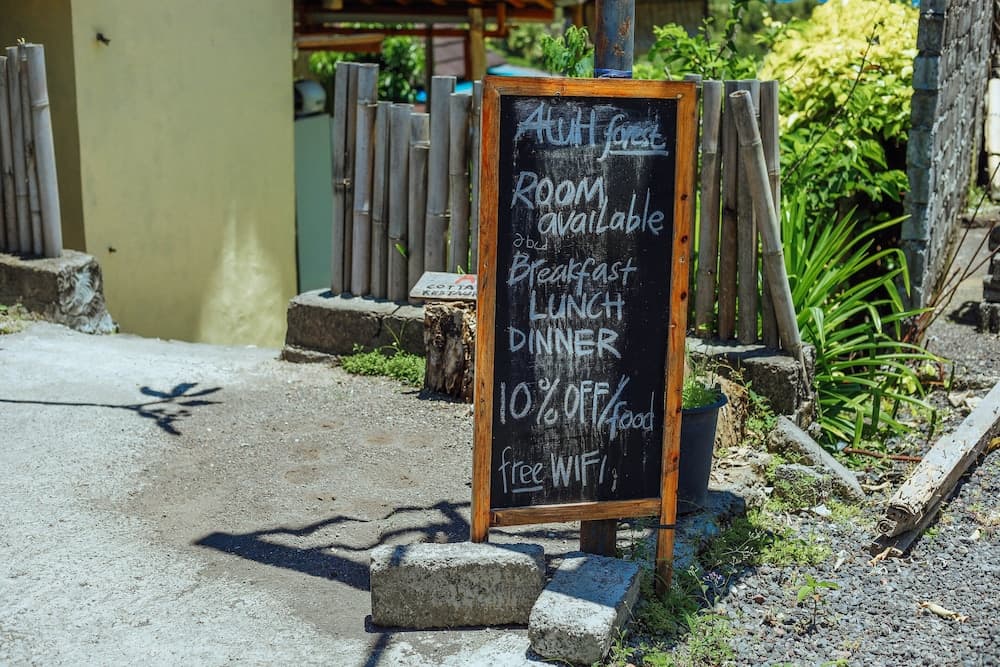 AtuH forest
ROOM
available
abcd
Breakfast
LUNCH
DINNER
10% OFF/food
free WIFI
COTTA
RESTAU